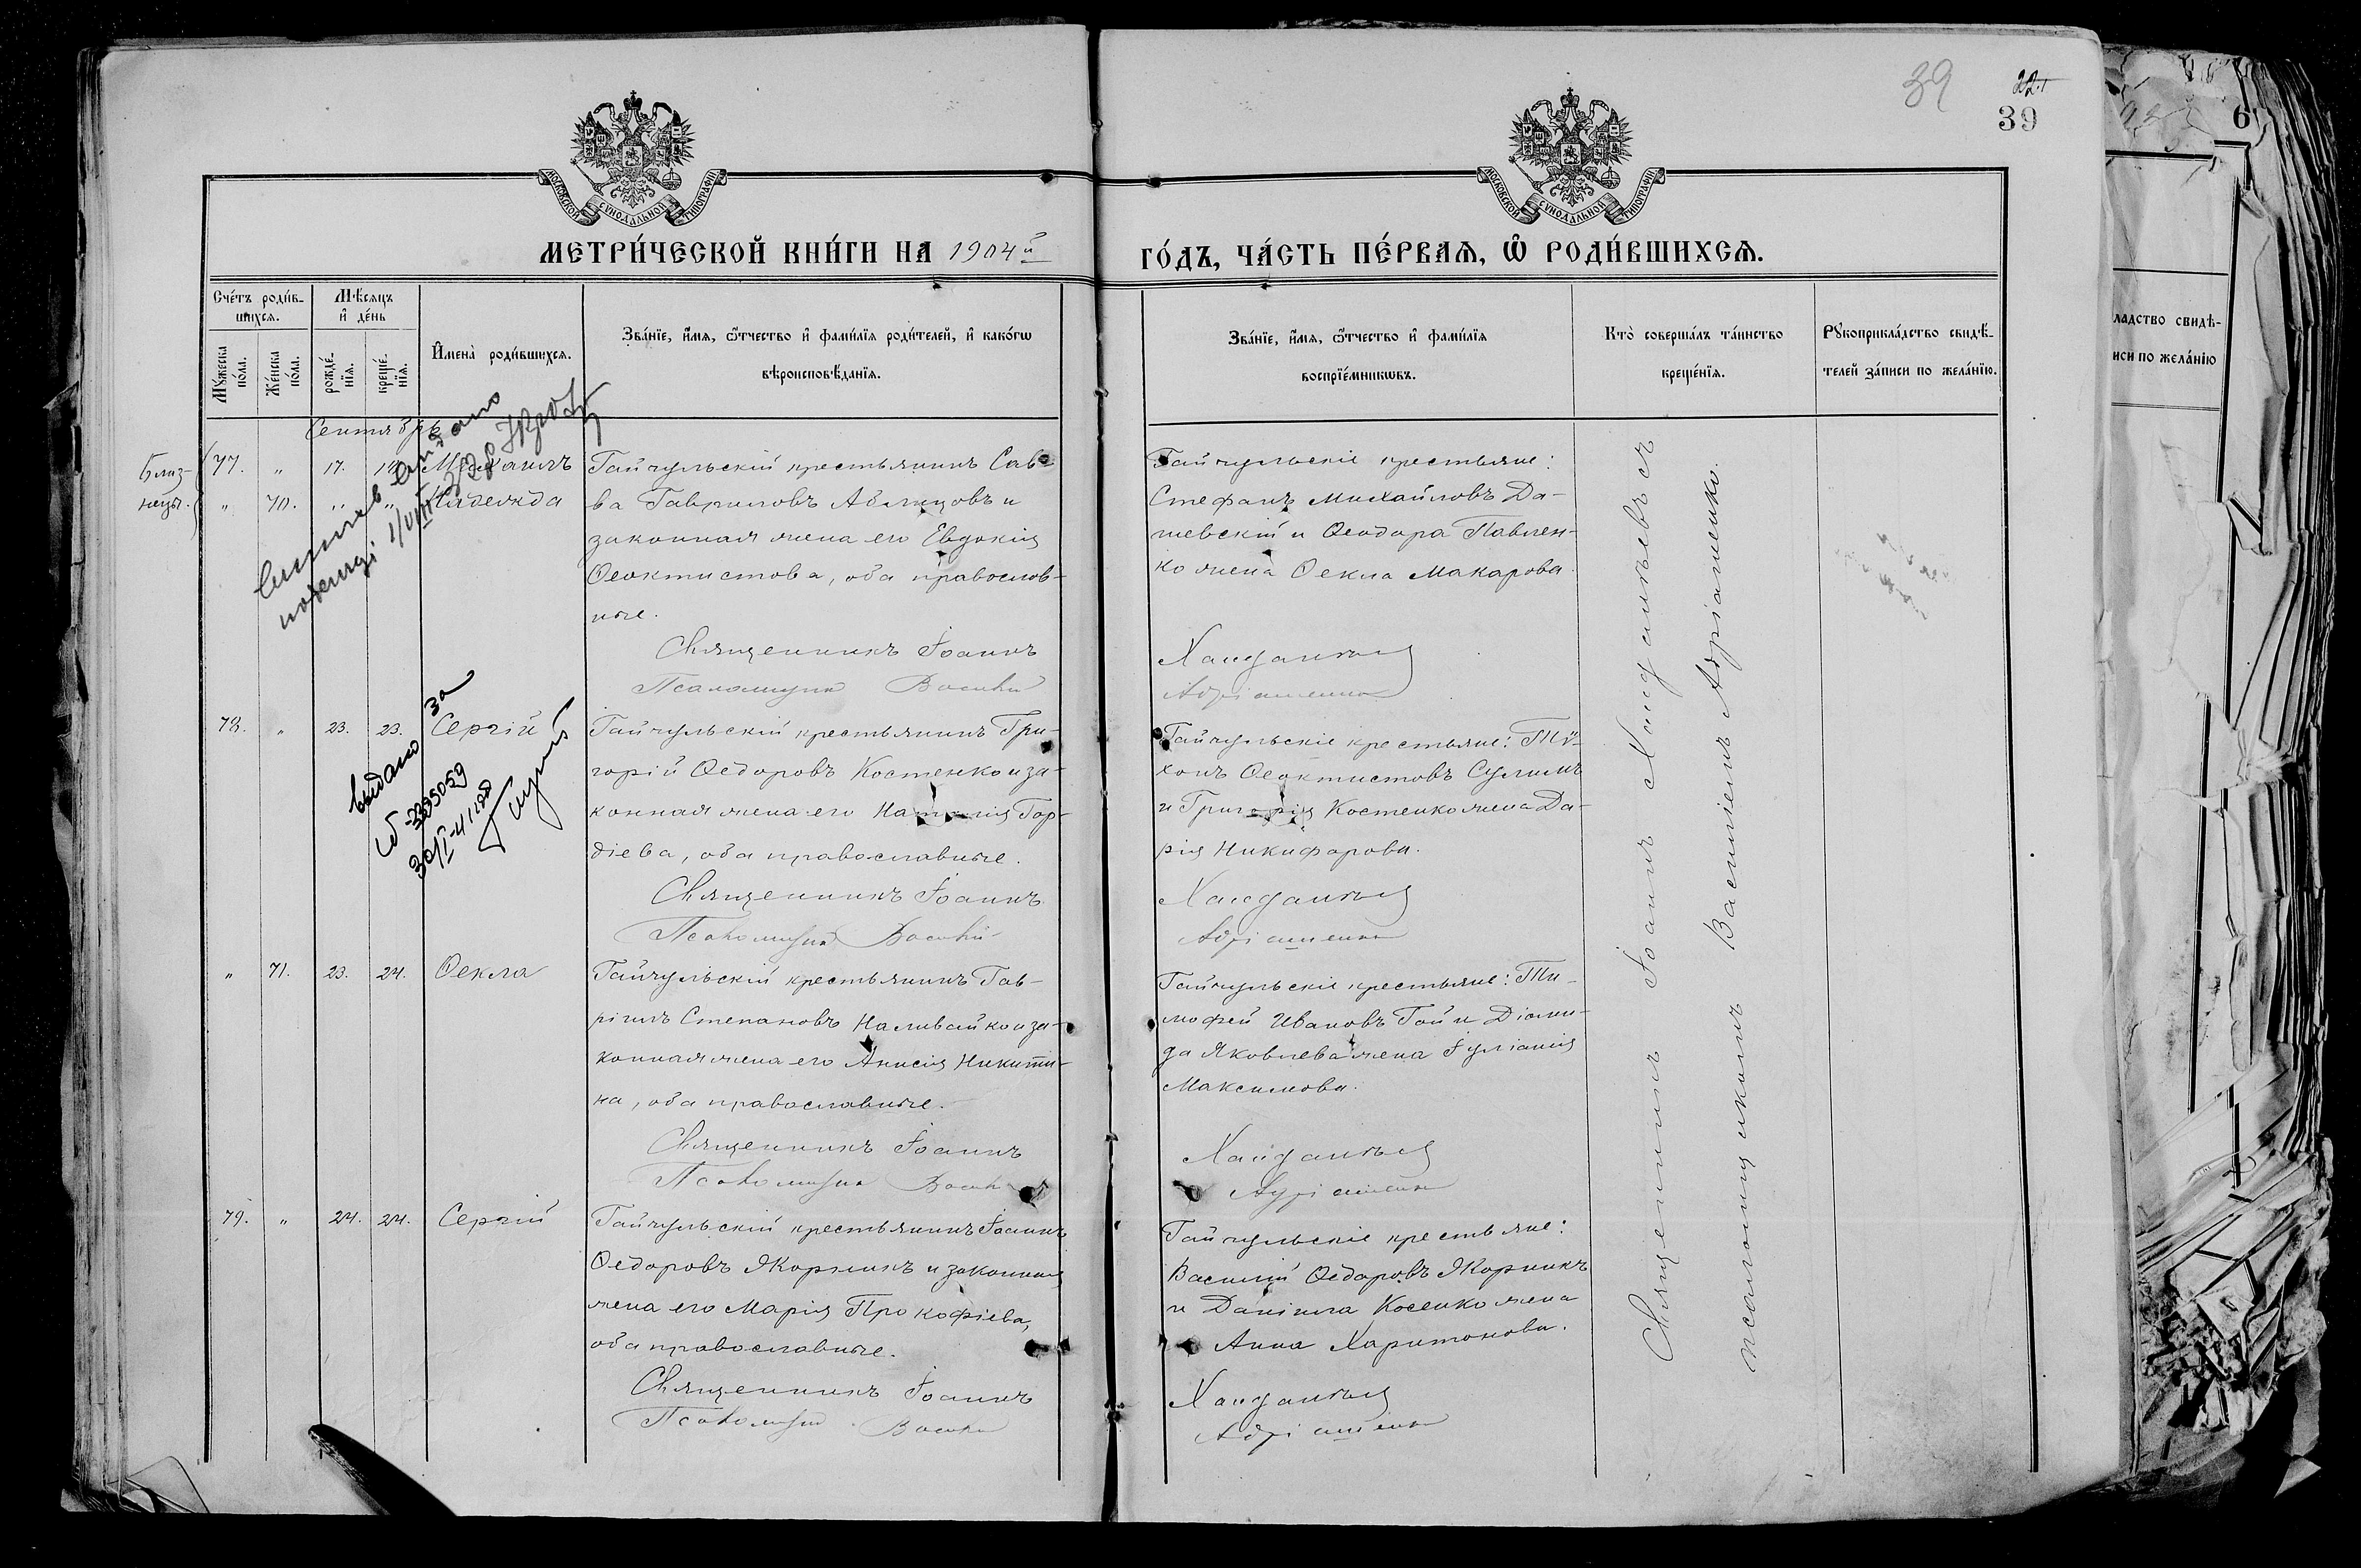 39
22
39
6
МОСКОВСКОЙ СѴНОДАЛЬНОЙ ТИПОГРАФІИ
МОСКОВСКОЙ СѴНОДАЛЬНОЙ ТИПОГРАФІИ
МЕТРИ́ЧЕСКОЙ КНИ́ГИ НА 1904й
ГО́ДЪ, ЧА́СТЬ ПЕ́РВАЯ, Ѡ РОДИ́ВШИХСЯ.
Сче́тъ роди́в-
шихся.
Мѣсяцъ
и де́нь
Му́жеска
по́ла.
Же́нска
по́ла.
рожде́-
нія.
креще́-
нія.
Имена̀ роди́вшихся.
Зва́ніе, и́мя, ѻ҆́тчество и фами́лїя роди́телей, и како́гѡ
вѣроисповѣ́данїя.
Зва́ніе, и́мя, ѻ҆́тчество и фами́лїя
воспрїе́мникѡвъ.
Кто̀ соверша́лъ та́инство
креще́нїя.
Рꙋкоприкла́дство свидѣ́-
телей за́писи по жела́нїю.
ладство свидѣ-
иси по жела́нїю
Сентябрь
Близ-
нецы.
77. " 17. Михаилъ
" 70. " " Надежда
Гайчульскій крестьянинъ Сав-
ва Гавриловъ и
законная жена его Евдокія
Ѳеоктистова, оба православ-
ные.
Священникъ Іоаннъ
Псаломщик Василій
Гайчульскіе крестьяне:
Стефанъ Михайловъ Да-
шевскій и Ѳеодора Павлен-
ко жена Ѳекла Макарова.
Хандалѣевъ
Адріашенко
78. " 23. 23. Сергій
Гайчульскій крестьянинъ Гри-
горій Ѳедоровъ Костенко и за-
конная жена его Наталія Гор-
діева, оба православные.
Священникъ Іоаннъ
Псаломщик Василій
Гайчульскіе крестьяне: Ти-
хонъ Ѳеоктистовъ Сулимъ
и Григорія Костенко жена Да-
рія Никифорова.
Адріашенко
выдано за
" 71. 23. 24. Ѳекла
Гайчульскій крестьянинъ Гав-
ріилъ Степановъ Наливайко и за-
конная жена его Анисія Никити-
на, оба православные.
Священникъ Іоаннъ
Псаломщик
Гайчульскіе крестьяне: Ти-
мофей Ивановъ Гой и Діоми-
да Яковлева жена Іуліанія
Максимова.
Адріашенко
79. " 24. 24. Сергій
Гайчульскій крестьянинъ Іоаннъ
Ѳедоровъ Якорникъ и законная
жена его Марія Прокофіева,
оба православные.
Священникъ Іоаннъ
Псаломщик
Гайчульскіе крестьяне:
Василій Ѳедоровъ Якорникъ
и Даніила Косенко жена
Анна Харитонова.
Адріашенко
Священникъ Іоаннъ съ
псаломщикомъ Василіемъ Адріашенко.